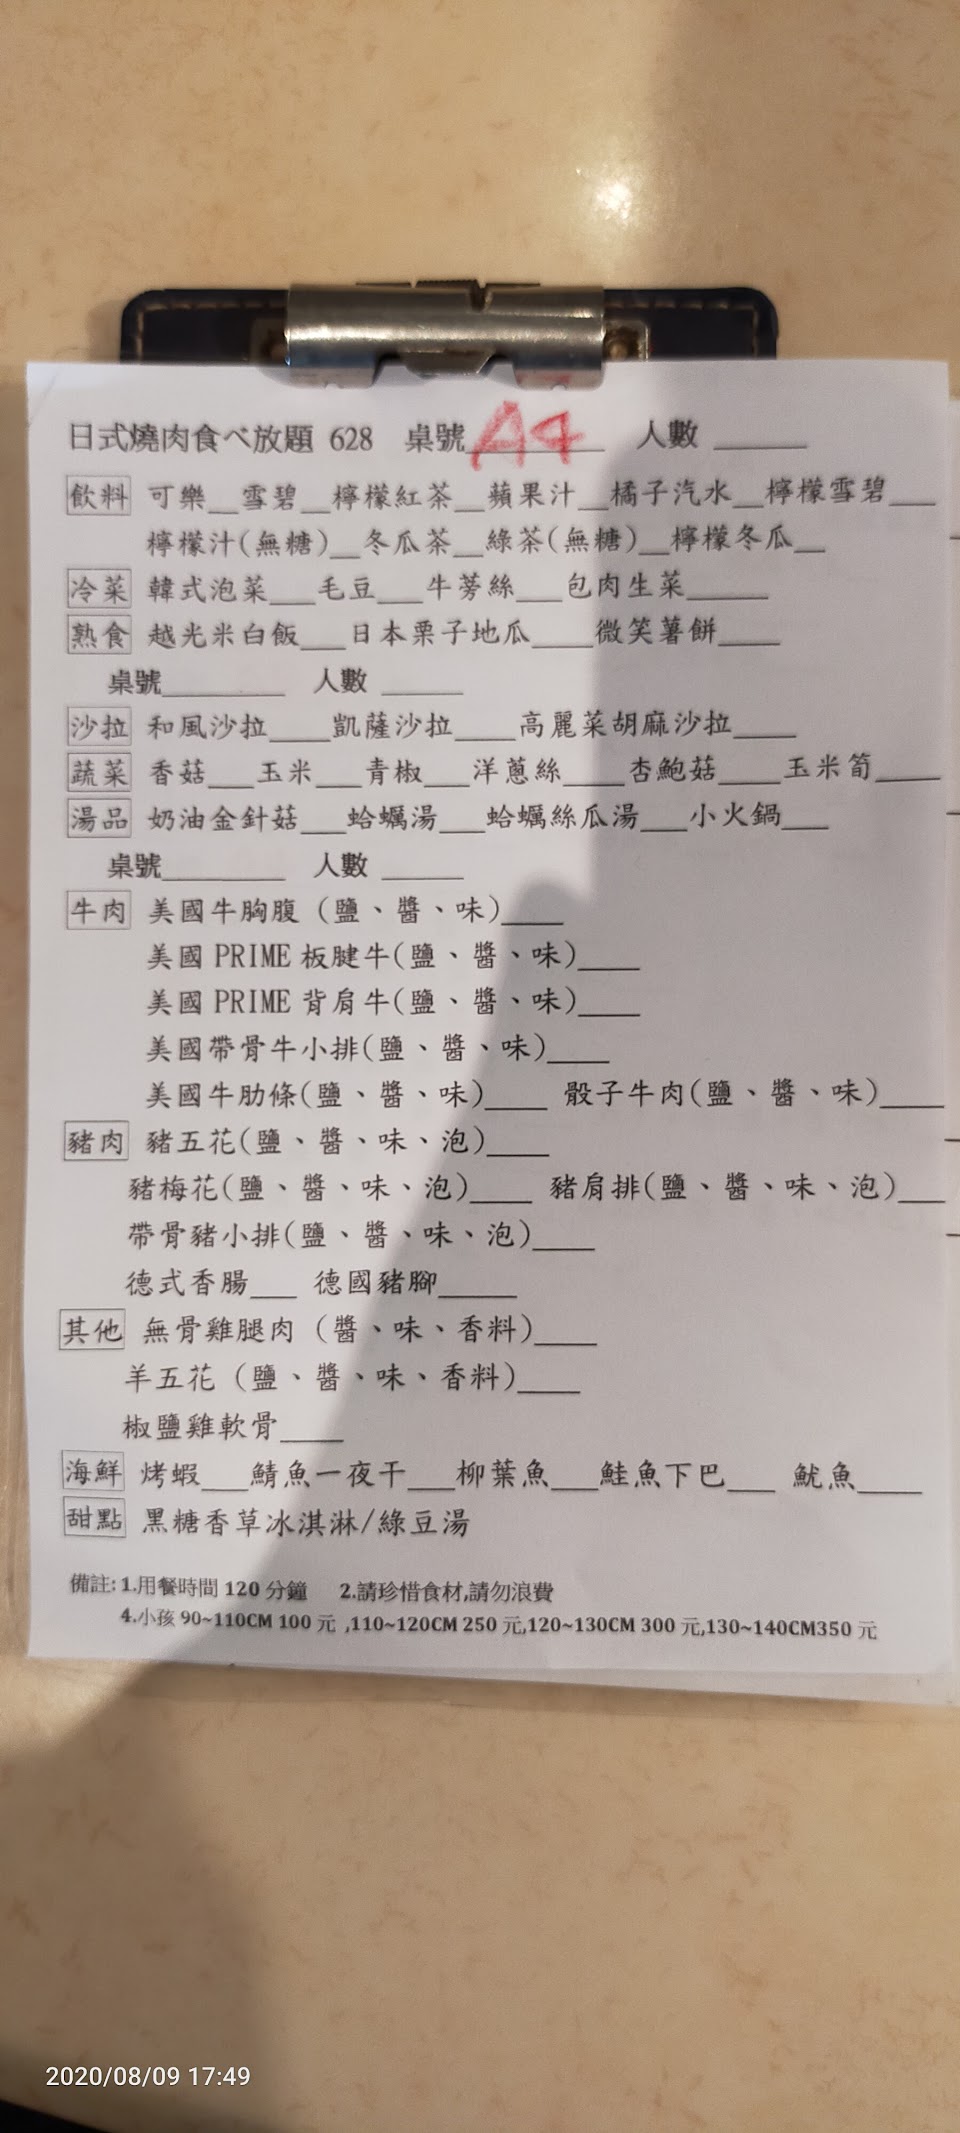 日式燒肉食べ放題 628 桌號 A4 人數 ______
飲料 可樂__雪碧__檸檬紅茶__蘋果汁__橘子汽水__檸檬雪碧___
檸檬汁(無糖)__冬瓜茶__綠茶(無糖)__檸檬冬瓜__
冷菜 韓式泡菜___毛豆___牛蒡絲___包肉生菜_____
熟食 越光米白飯___日本栗子地瓜____微笑薯餅____
桌號________ 人數 _____
沙拉 和風沙拉____凱薩沙拉____高麗菜胡麻沙拉____
蔬菜 香菇___玉米___青椒___洋蔥絲____杏鮑菇____玉米筍____
湯品 奶油金針菇___蛤蠣湯___蛤蠣絲瓜湯___小火鍋___
桌號________ 人數 _____
牛肉 美國牛胸腹 (鹽、醬、味)____
美國 PRIME 板腱牛(鹽、醬、味)____
美國 PRIME 背肩牛(鹽、醬、味)____
美國帶骨牛小排(鹽、醬、味)____
美國牛肋條(鹽、醬、味)____ 骰子牛肉(鹽、醬、味)____
豬肉 豬五花(鹽、醬、味、泡)____
豬梅花(鹽、醬、味、泡)____ 豬肩排(鹽、醬、味、泡)___
帶骨豬小排(鹽、醬、味、泡)____
德式香腸___ 德國豬腳_____
其他 無骨雞腿肉 (醬、味、香料)____
羊五花 (鹽、醬、味、香料)____
椒鹽雞軟骨____
海鮮 烤蝦___鯖魚一夜干___柳葉魚___鮭魚下巴___ 魷魚____
甜點 黑糖香草冰淇淋/綠豆湯
備註: 1.用餐時間 120 分鐘 2.請珍惜食材,請勿浪費
4.小孩 90~110CM 100 元 ,110~120CM 250 元,120~130CM 300 元,130~140CM350 元
2020/08/09 17:49